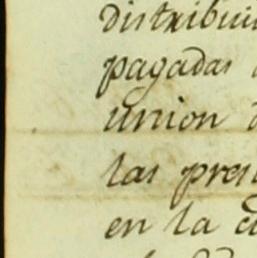 distribui
pagadas
union d
las pres
en la c